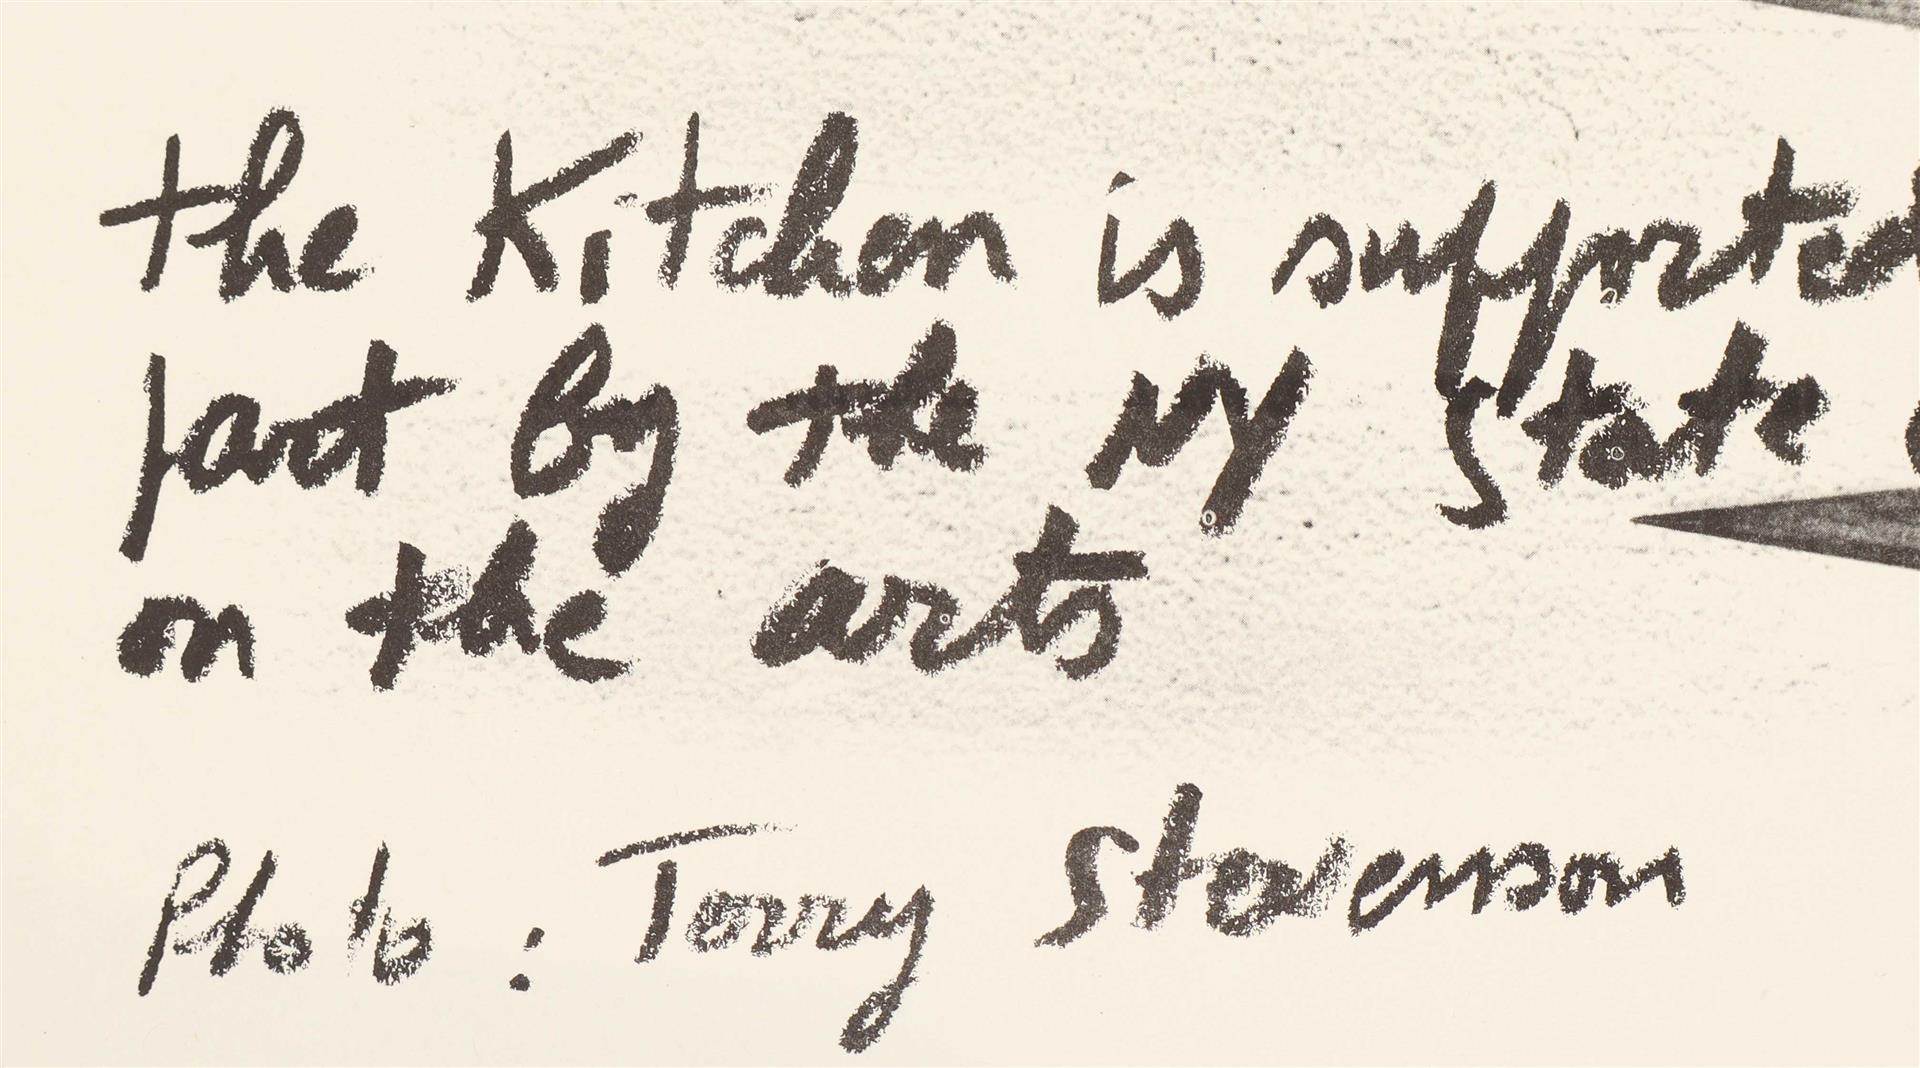 the Kitchen is supported
part by the ny State
on the arts
Photo : Terry Stevenson